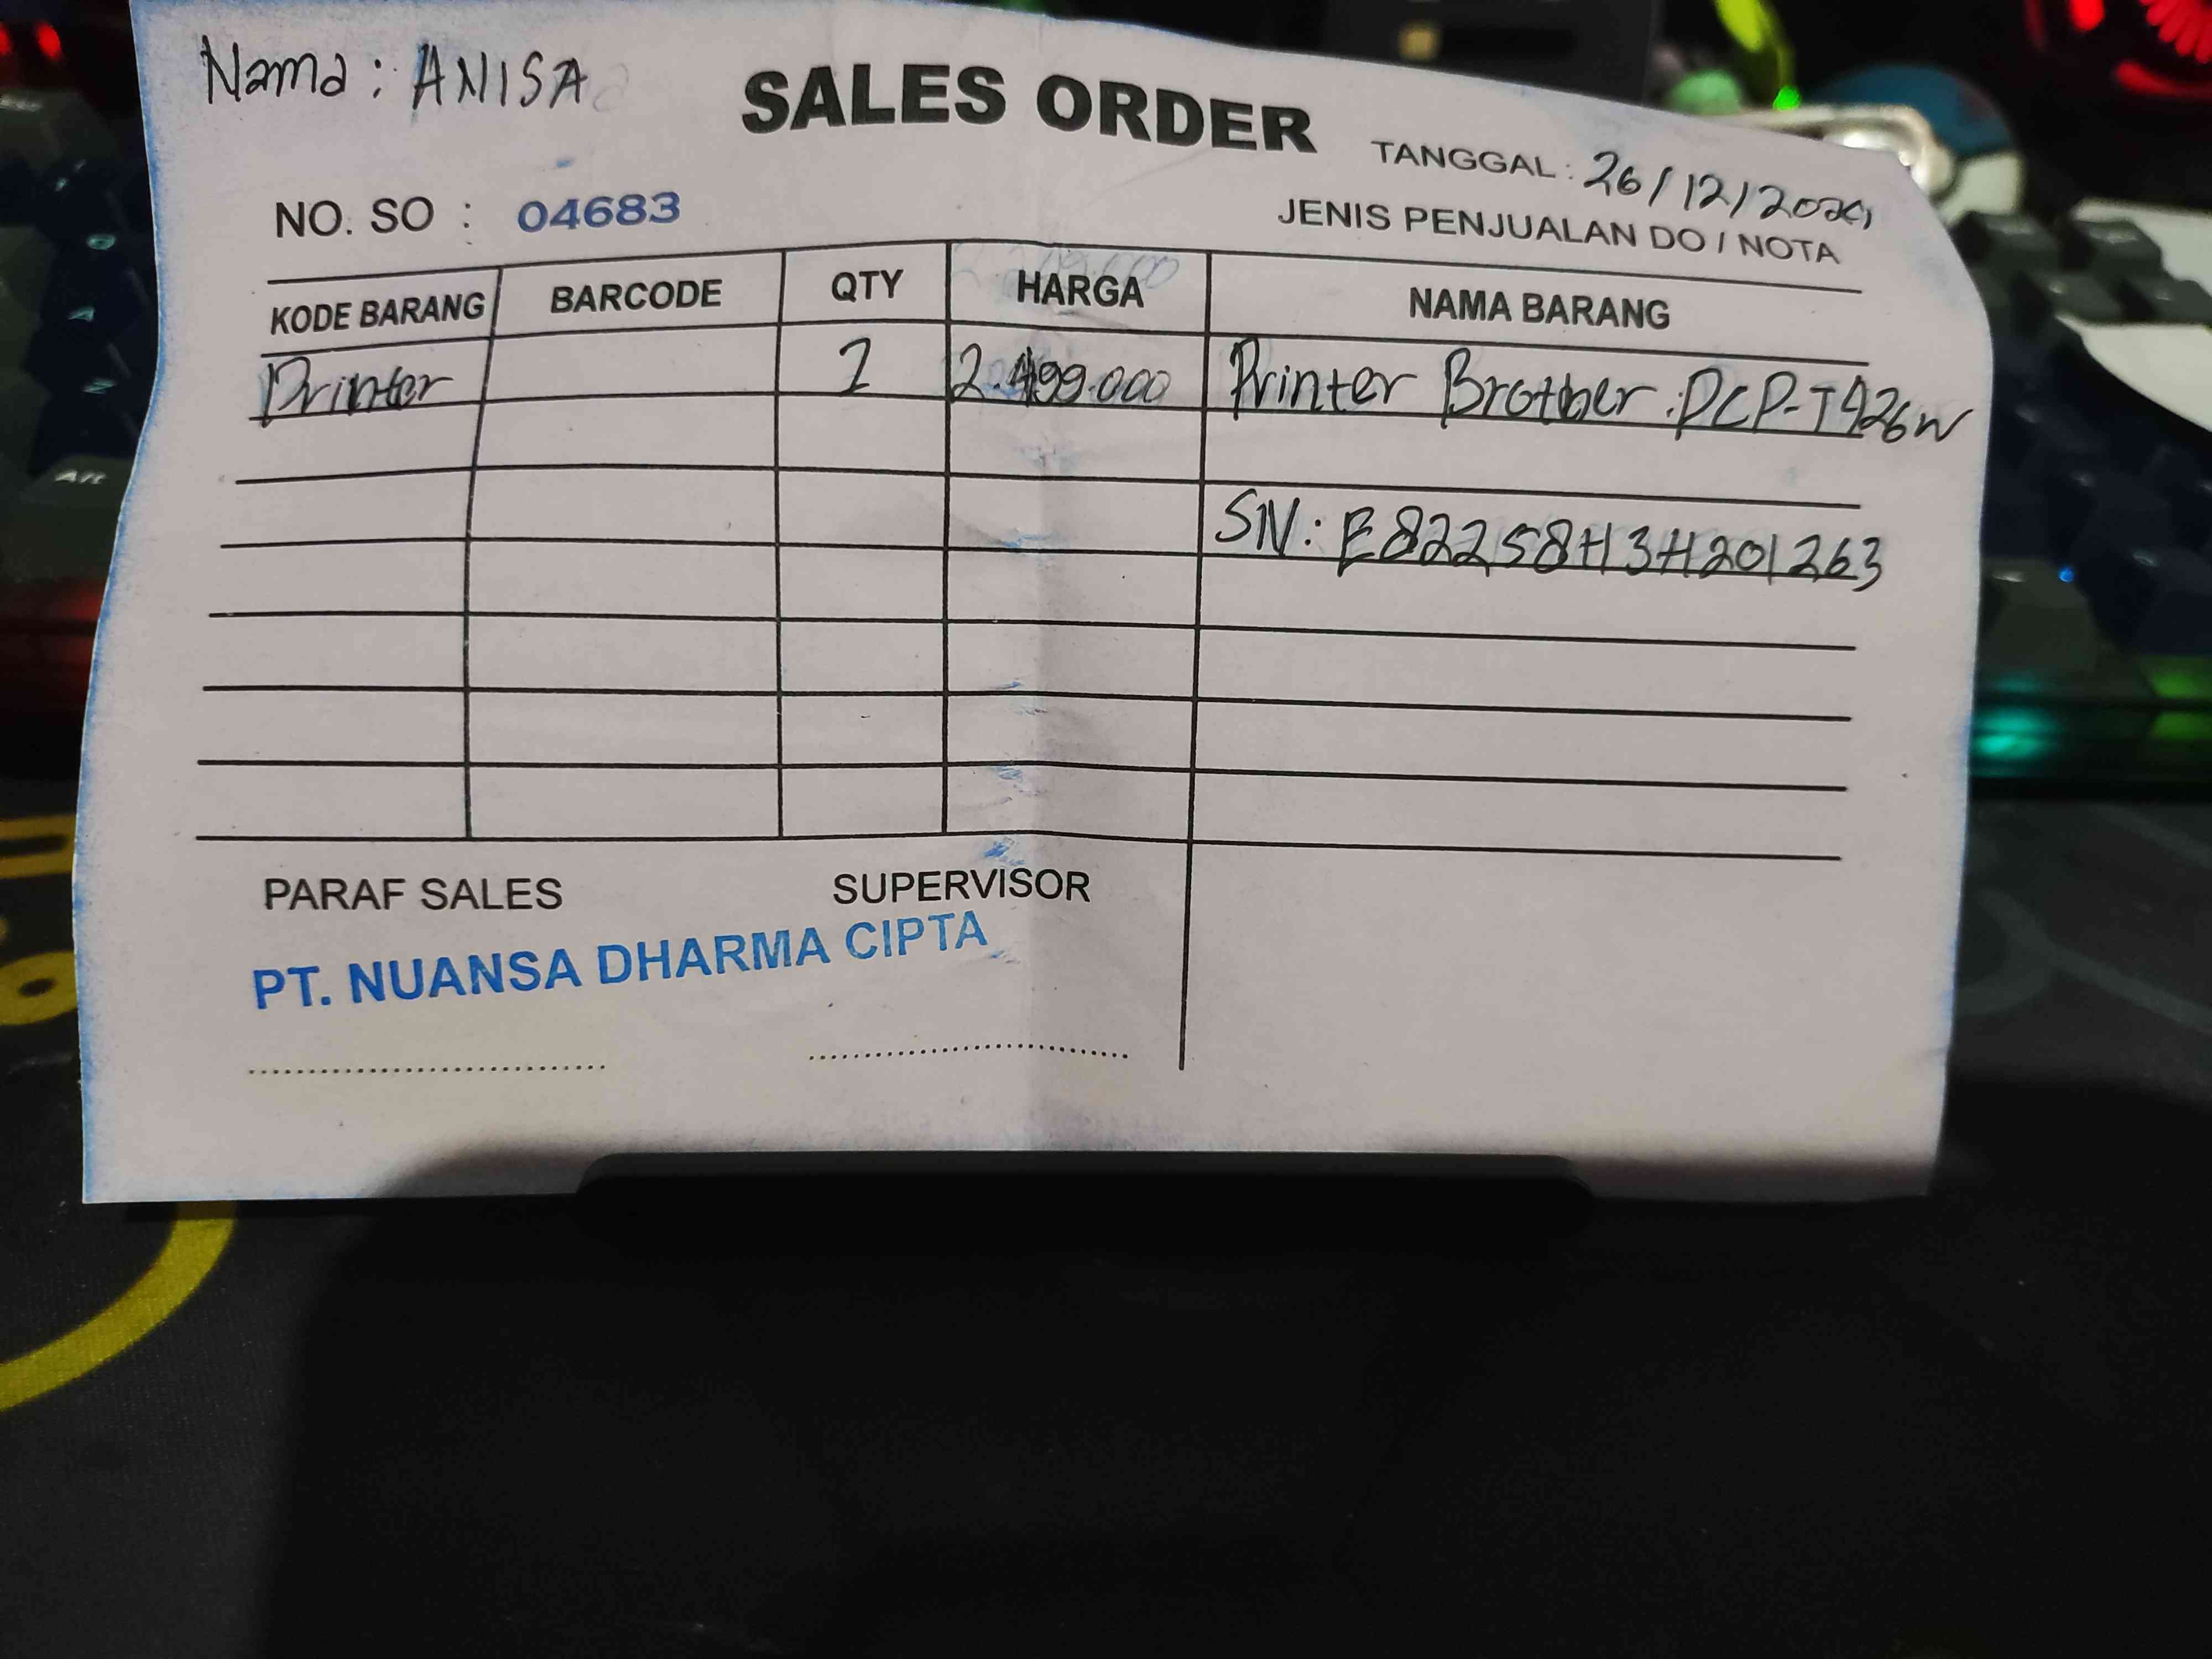 Nama : ANISA
SALES ORDER
TANGGAL : 26/12/2024
NO. SO : 04683
JENIS PENJUALAN DO / NOTA
KODE BARANG BARCODE QTY HARGA NAMA BARANG
Printer 1 2.499.000 Printer Brother DCP-T426W
SN: E82258H3H201263
PARAF SALES SUPERVISOR
PT. NUANSA DHARMA CIPTA